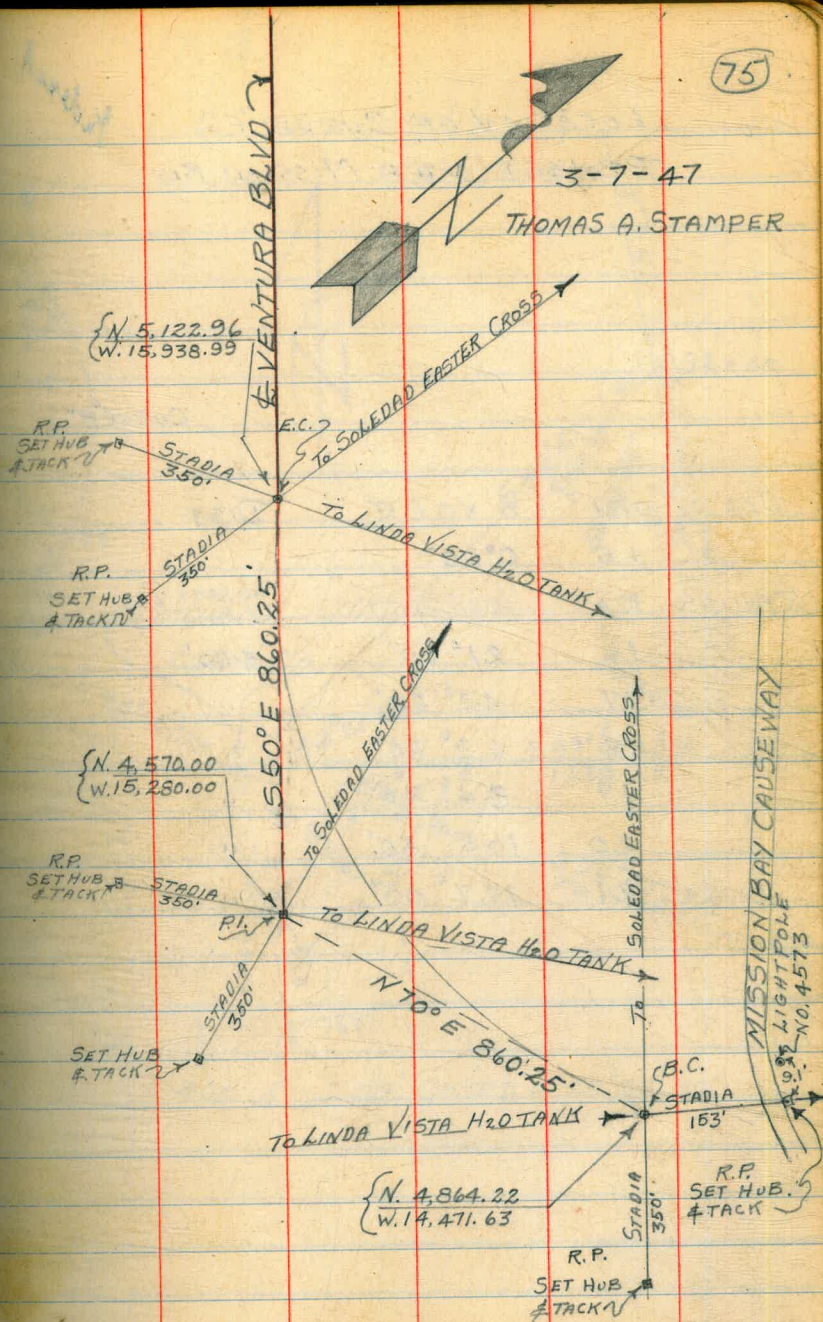 75
3-7-47
THOMAS A. STAMPER
℄ VENTURA BLVD
N
{N. 5,122.96
(W. 15,938.99
E.C.
TO SOLEDAD EASTER CROSS
R.P.
SET HUB
& TACK
STADIA
350'
TO LINDA VISTA H2O TANK
STADIA
350'
R.P.
SET HUB
& TACK
S50°E 860.25'
TO SOLEDAD EASTER CROSS
{N. 4,570.00
(W. 15,280.00
R.P.
SET HUB
& TACK
STADIA
350'
P.I.
TO LINDA VISTA H2O TANK
STADIA
350'
SET HUB
& TACK
N 70° E 860.25'
TO SOLEDAD EASTER CROSS
MISSION BAY CAUSEWAY
LIGHT POLE
NO. 4573
9.1'
B.C.
STADIA
153'
TO LINDA VISTA H2O TANK
{N. 4,864.22
W. 14,471.63
STADIA
350'
R.P.
SET HUB.
& TACK
R.P.
SET HUB
& TACK